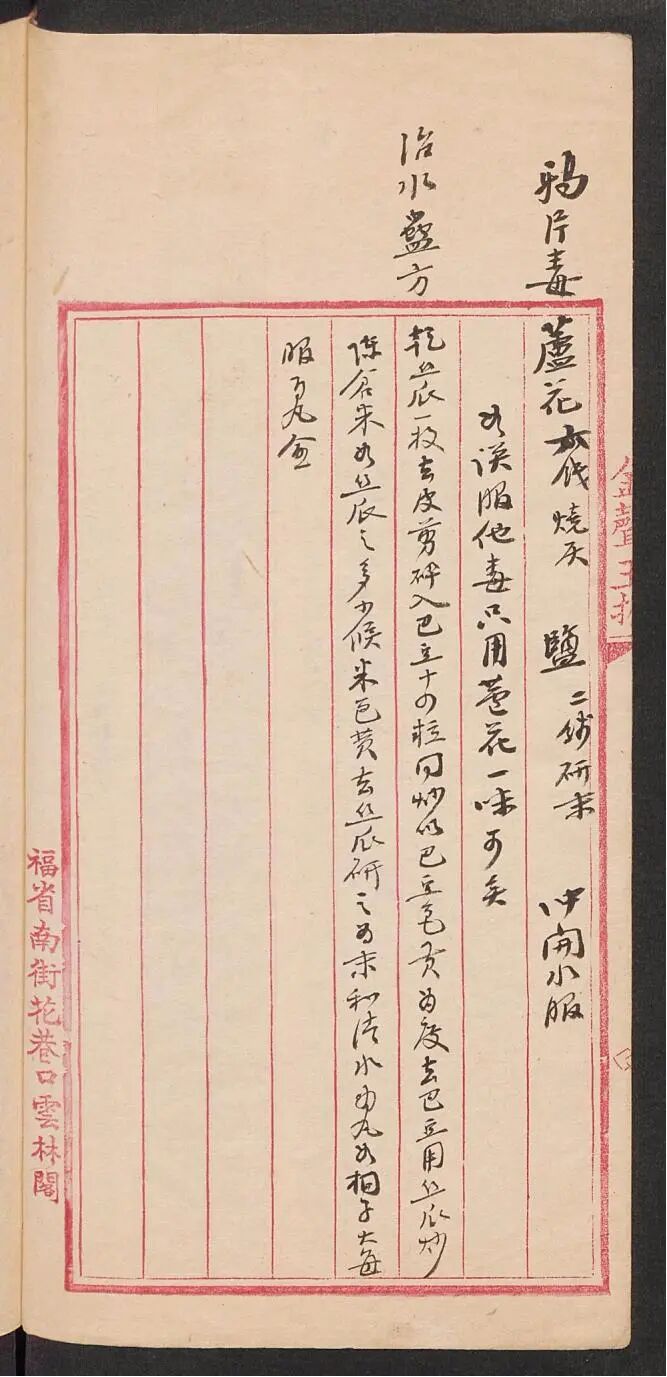 鴉片毒 蘆花 六錢 燒灰 鹽 二錢 研末 冲開水服
如誤服他毒只用蘆花一味可矣
治水蠱方
乾絲瓜一枚去皮剪碎入巴豆十四粒同炒以巴豆色黄為度去巴豆用絲瓜炒
陳倉米如絲瓜之多少候米色黄去絲瓜研之為末和清水為丸如桐子大每
服百丸
金聲玉振
福省南街花巷口雲林閣